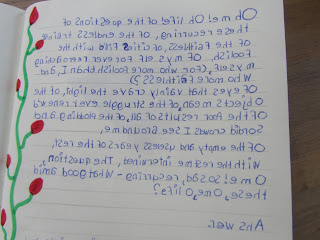 Oh me! Oh life! of the questions of
these recurring, of the endless trains
of the Faithless, of cities Fill'd with the
Foolish, Of myself For ever reproaching
myself, (For who more foolish than I, and
Who more Faithless?)
Of eyes that vainly crave the light, of the
Objects mean, of the struggle ever renew'd
Of the Poor results of all, of the plodding and
Sordid crowds I see around me,
Of the empty and useless years of the rest,
With the rest me intertwined, The question,
O me! so sad, recurring - What good amid
these, O me, O life?
Answer.